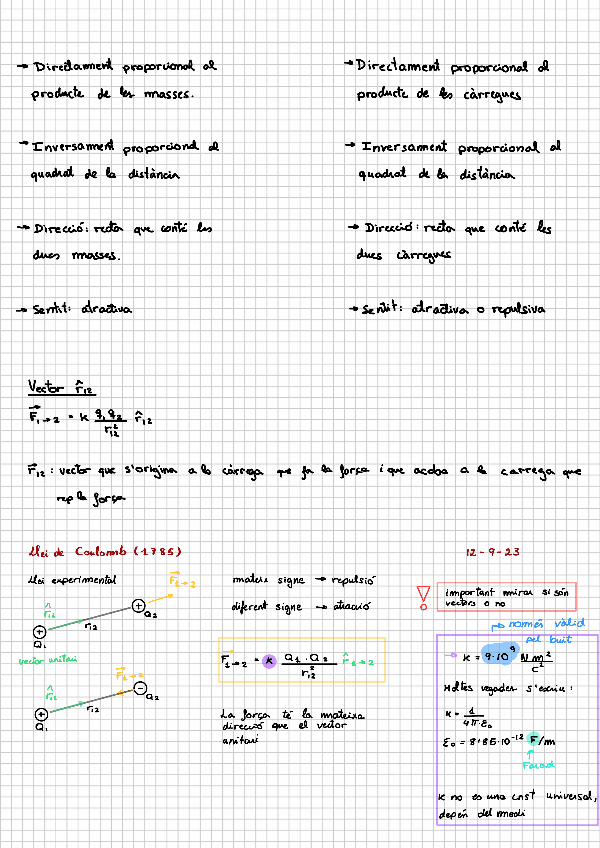 → Directament proporcional al
producte de les masses.
→ Inversament proporcional al
quadrat de la distància
→ Direcció: recta que conté les
dues masses.
→ Sentit: atractiva
→ Directament proporcional al
producte de les càrregues
→ Inversament proporcional al
quadrat de la distància
→ Direcció: recta que conté les
dues càrregues
→ Sentit: atractiva o repulsiva
Vector r̂₁₂
F⃗₁→₂ = k q₁q₂/r₁₂² r̂₁₂
r⃗₁₂: vector que s'origina a la càrrega que fa la força i que acaba a la carrega que
rep la força
Llei de Coulomb (1785)
12-9-23
Llei experimental
F⃗₁→₂
r̂₁₂
r₁₂
Q₁
Q₂
vector unitari
F⃗₁→₂
r̂₁₂
r₁₂
Q₁
Q₂
mateix signe → repulsió
diferent signe → atracció
F⃗₁→₂ = k Q₁·Q₂/r₁₂² r̂₁→₂
La força té la mateixa
direcció que el vector
unitari
! important mirar si són
vectors o no
només vàlid
pel buit
→ k = 9·10⁹ N m²/C²
Moltes vegades s'escriu:
k = 1/4π·ε₀
ε₀ = 8'85·10⁻¹² F/m
Farad
k no es una cnst universal,
depèn del medi